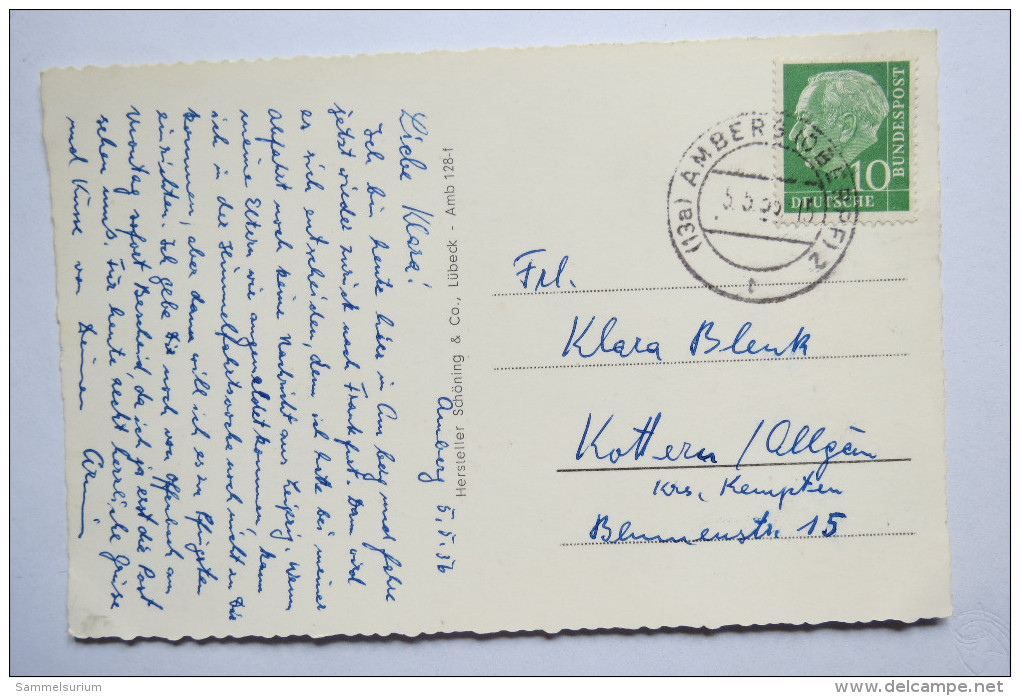 Amberg 5.5.56
Liebe Klara!
Ich bin heute hier in Amberg und fahre
jetzt wieder zurück nach Frankfurt. Dann wird
es sich entscheiden, denn ich hatte bei meiner
Abfahrt noch keine Nachricht aus Leipzig. Wenn
meine Eltern wie angemeldet kommen, kann
ich in der Himmelfahrtswoche noch nicht zu Dir
kommen, aber dann will ich es zu Pfingsten
einrichten. Ich gebe Dir noch von Offenbach am
Montag sofort Bescheid, da ich ja erst die Post
sehen muß. Für heute recht herzliche Grüße
und Küsse von Deinem
Hersteller Schöning & Co., Lübeck - Amb 128-f
DEUTSCHE
BUNDESPOST
10
(13a) AMBERG (OBERPF) 2
5.5.
Frl.
Klara Blenk
Kottern / Allgäu
Krs. Kempten
Blumenstr. 15
Sammelsurium
delcampe.net